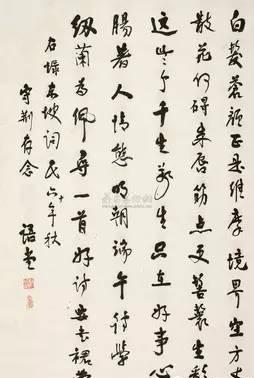 白髮蒼顏正是維摩境界空方丈
散花何碍朱唇筯点更髻鬟生彩
這些个千生萬生只在好事心
腸著人情態明朝端午待學
紉蘭為佩尋一首好詩要書裙
右録東坡詞民六十年秋
守荆存念
語堂